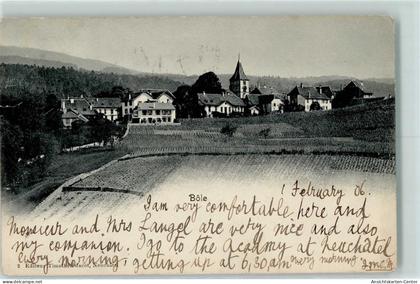 Bôle
1 February 06
I am very comfortable, here and
Monsieur and Mrs Langel are very nice and also
my companion. I go to the Academy at Neuchatel
every morning, getting up at 6,30 am every morning.
www.ansichtskarten-center.de